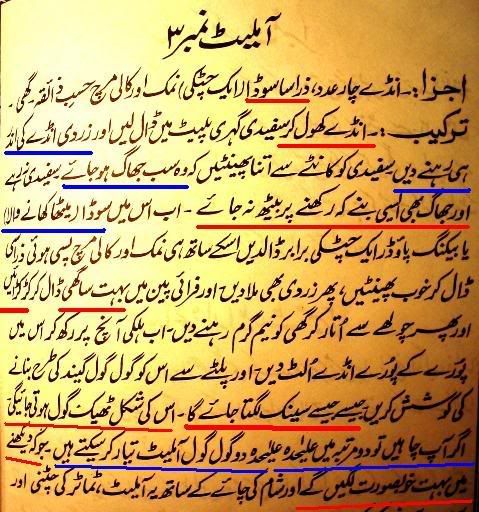 آملیٹ نمبر ۳
اجزا:۔ انڈے چار عدد، ذرا سا سوڈا (ایک چٹکی) نمک اور کالی مرچ حسب ذائقہ۔ گھی۔
ترکیب:۔ انڈے کھول کر سفیدی گہری پلیٹ میں ڈال لیں اور زردی انڈے کی اند
ہی رہنے دیں سفیدی کو کانٹے سے اتنا پھینٹیں کہ وہ سب جھاگ ہو جائے سفیدی نہ رہے
اور جھاگ بھی ایسی بنے کہ رکھنے پر بیٹھ نہ جائے۔ اب اس میں سوڈا (میٹھا کھانے والا)
یا بیکنگ پاؤڈر ایک چٹکی برابر ڈالدیں اسکے ساتھ ہی نمک اور کالی مرچ پسی ہوئی ذرا سی
ڈال کر خوب پھینٹیں، پھر زردی بھی ملا دیں۔ اور فرائی پین میں بہت سا گھی ڈال کر کڑکڑائیں
اور پھر چولھے سے اُتار کر گھی کو نیم گرم رہنے دیں۔ اب ہلکی آنچ پر رکھ کر اس میں
پورے کے پورے انڈے اُلٹ دیں۔ اور پلٹے سے اس کو گول گول گیند کی طرح بنانے
کی کوشش کریں جیسے جیسے سینک لگتا جائے گا۔ اس کی شکل ٹھیک گول ہوتی جائیگی
اگر آپ چاہیں تو دو مرتبہ میں علیٰحدہ علیٰحدہ دو گول گول آملیٹ تیار کر سکتے ہیں۔ جو کہ دیکھنے
میں بہت خوبصورت لگیں گے اور شام کی چائے کے ساتھ یہ آملیٹ، ٹماٹر کی چٹنی اور